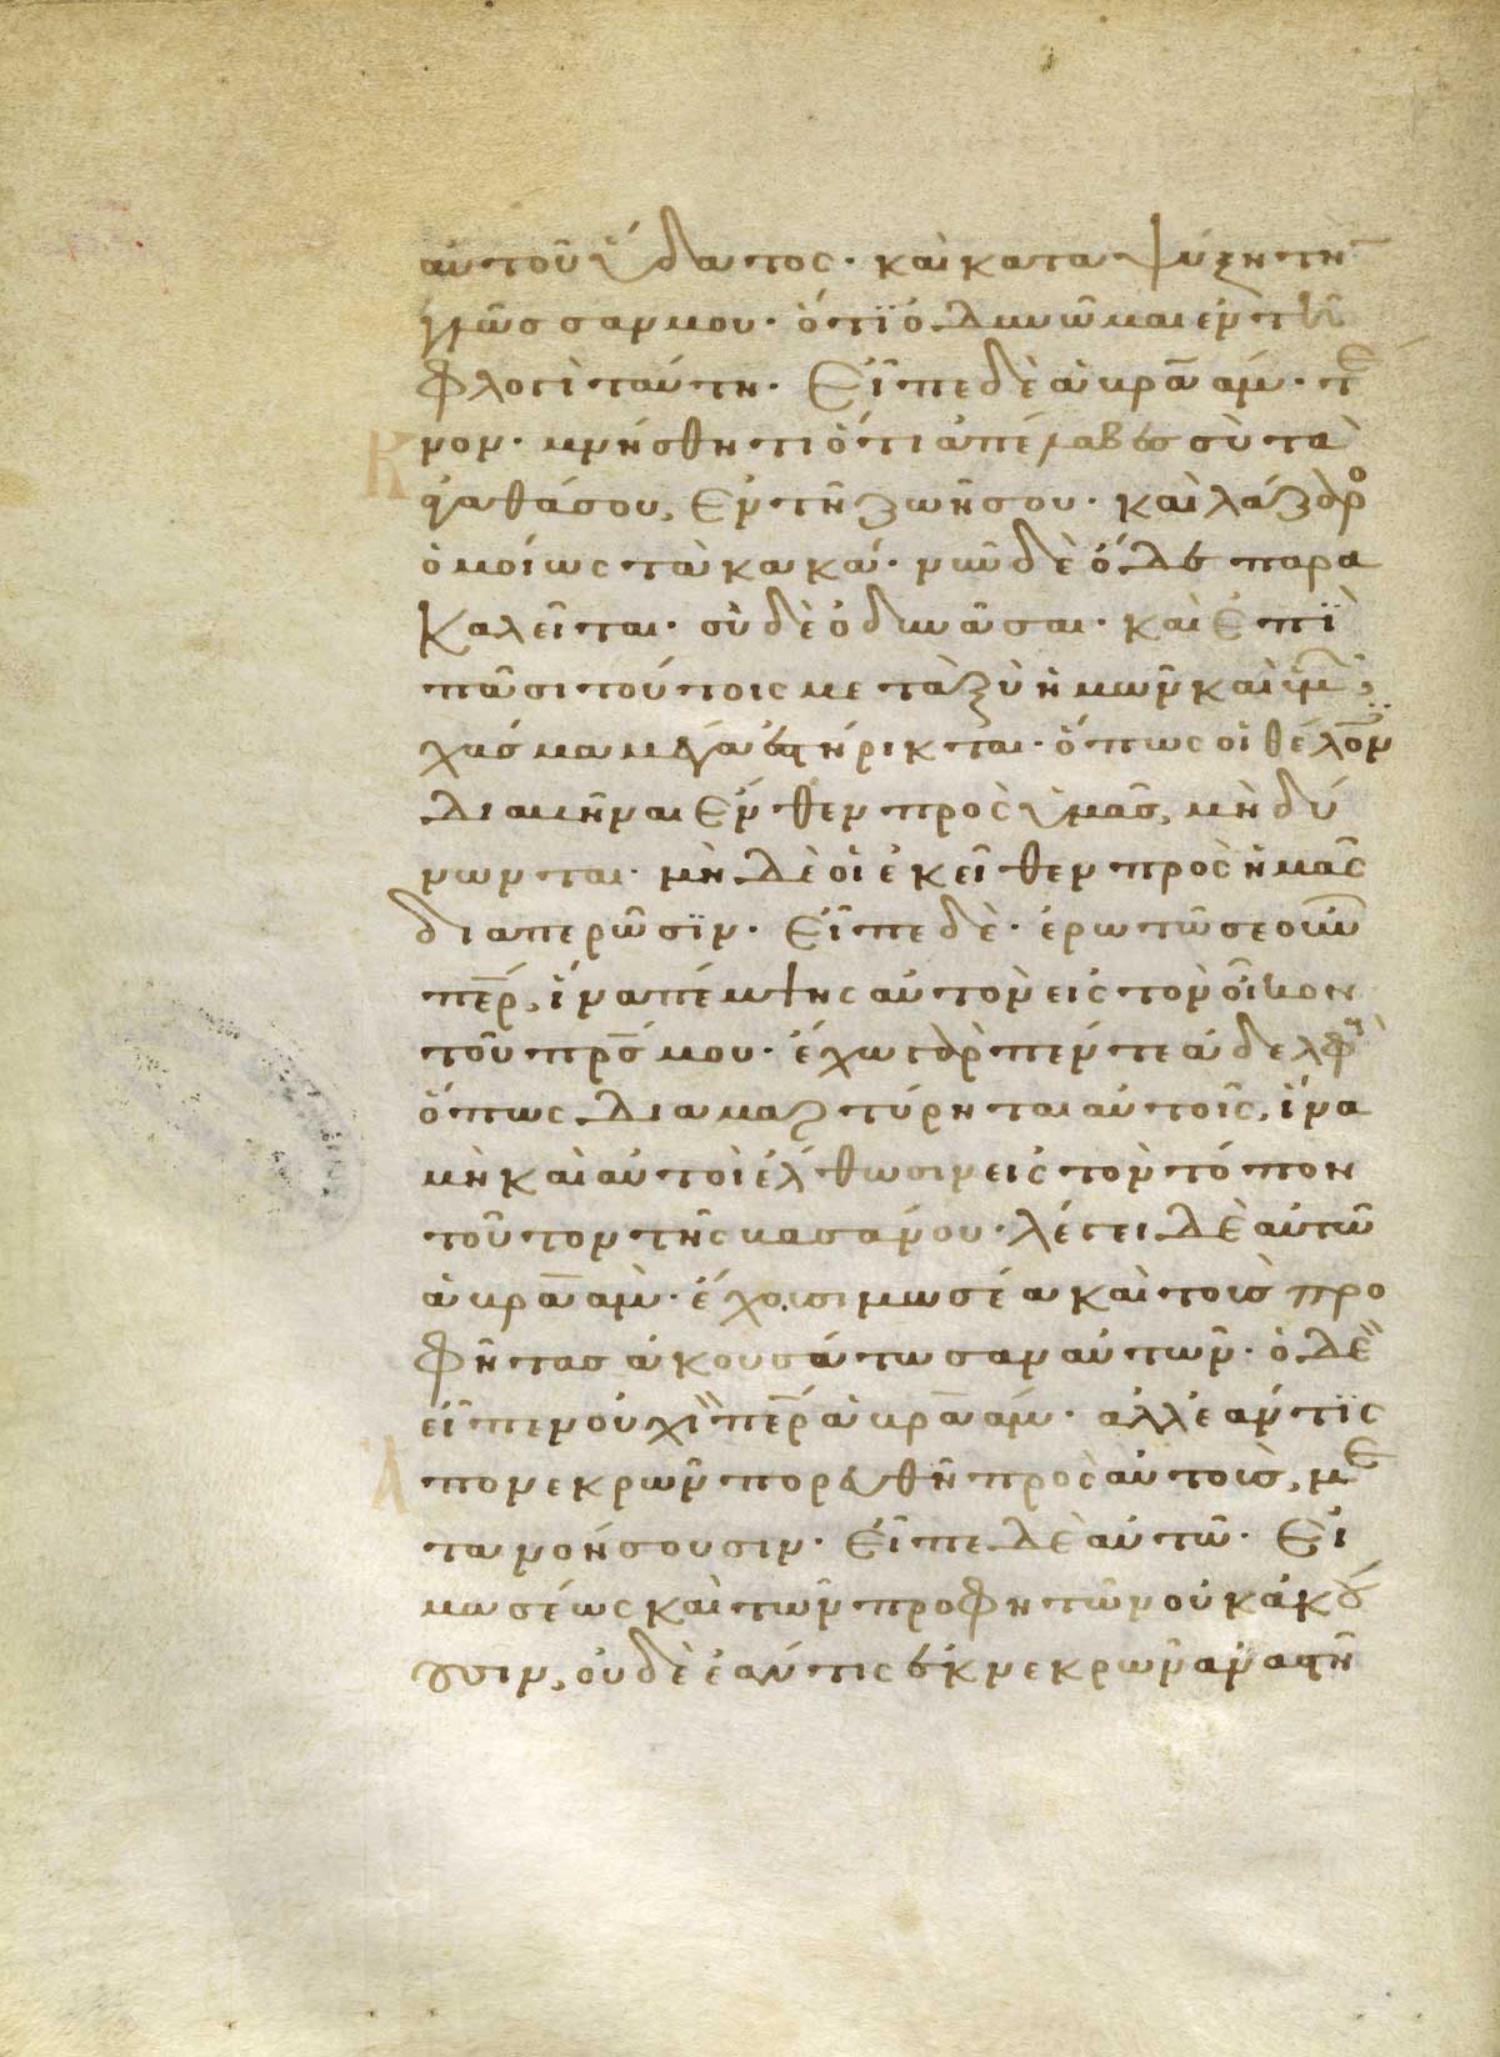 αυτοῦ ὕδατος· καὶ καταψύξη τὴ
γλῶσσαν μου· ὅτϊ ὀδυνῶμαι ἐν τῆ
φλογὶ ταύτη· Εἶπε δὲ ἀβρα̅άμ· τέ
κνον· μνήσθητι ὅτι ἀπέλαβες σὺ τὰ
ἀγαθά σου, Ἐν τῆ ζωῆ σου· καὶ λάζαρο
ὁμοίως τὰ κακά· νῦν δὲ ὅδε παρα
Καλεῖται· σὺ δὲ ὀδυνᾶσαι· καὶ Ἐπϊ
πᾶσι τούτοις μεταξὺ ἡμῶν καὶ ὑμ̅,
χάσμα μέγα ἐστήρικται· ὅπως οἱ θέλον
διαβῆναι Ἔνθεν πρὸς ὑμᾶς, μὴ δύ
νωνται· μὴ δὲ οἱ ἐκεῖθεν πρὸς ἡμᾶς
διαπερῶσϊν· Εἶπε δὲ· ἐρωτῶ σε οὖν
πε̅ρ, ἵνα πέμψης αὐτὸν εἰς τὸν οἶκον
τοῦ πρ̅σ μου· ἔχω γὰρ πέντε ἀδελφὺ
ὅπως διαμαρτύρηται αὐτοῖς, ἵνα
μὴ καὶ αὐτοὶ ἔλθωσιν εἰς τὸν τόπον
τοῦτον τῆς βασάνου· λέγει δὲ αὐτῶ
ἀβρα̅ὰμ· ἔχουσι μωσέα καὶ τοὺσ προ
φῆτασ ἀκουσάτωσαν αὐτῶν· ὁ δὲ
εἶπεν οὐχὶ πε̅ρ ἀβρα̅άμ· ἀλλ' ἐάν τϊς
ἀπο νεκρῶν πορευθῆ πρὸς αὐτοὺσ, με
τανοήσουσιν· Εἶπε δὲ αὐτῶ· Εἰ
μωσέως καὶ τῶν προφητῶν οὐκ ἀκού
ουσιν, οὐδὲ ἐάν τις ἐκ νεκρῶν ἀναστῆ